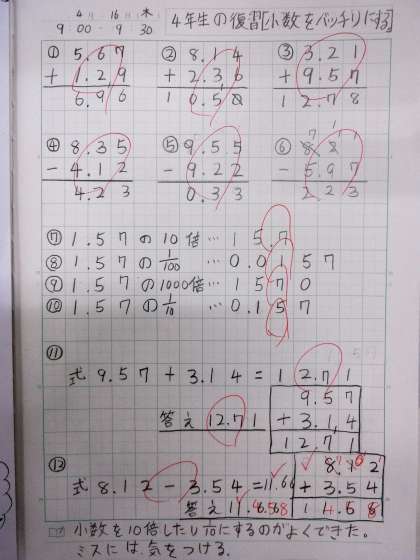 4月16日(木)
9:00 - 9:30
4年生の復習[小数をバッチリにする]
① 5.67 ② 8.14 ③ 3.21
+ 1.29 + 2.36 + 9.57
6.96 10.50 12.78
④ 8.35 ⑤ 9.55 ⑥
- 4.12 - 9.22 - 5.97
4.23 0.33 2.23
⑦ 1.57の10倍… 15.7
⑧ 1.57の1/100… 0.0157
⑨ 1.57の1000倍… 1570
⑩ 1.57の1/10… 0.157
⑪
式 9.57 + 3.14 = 12.71
9.57
答え 12.71 + 3.14
12.71
⑫
式 8.12 - 3.54 = 11.66
+ 3.54
答え
小数を10倍したり1/10にするのがよくできた。
ミスには気をつける。